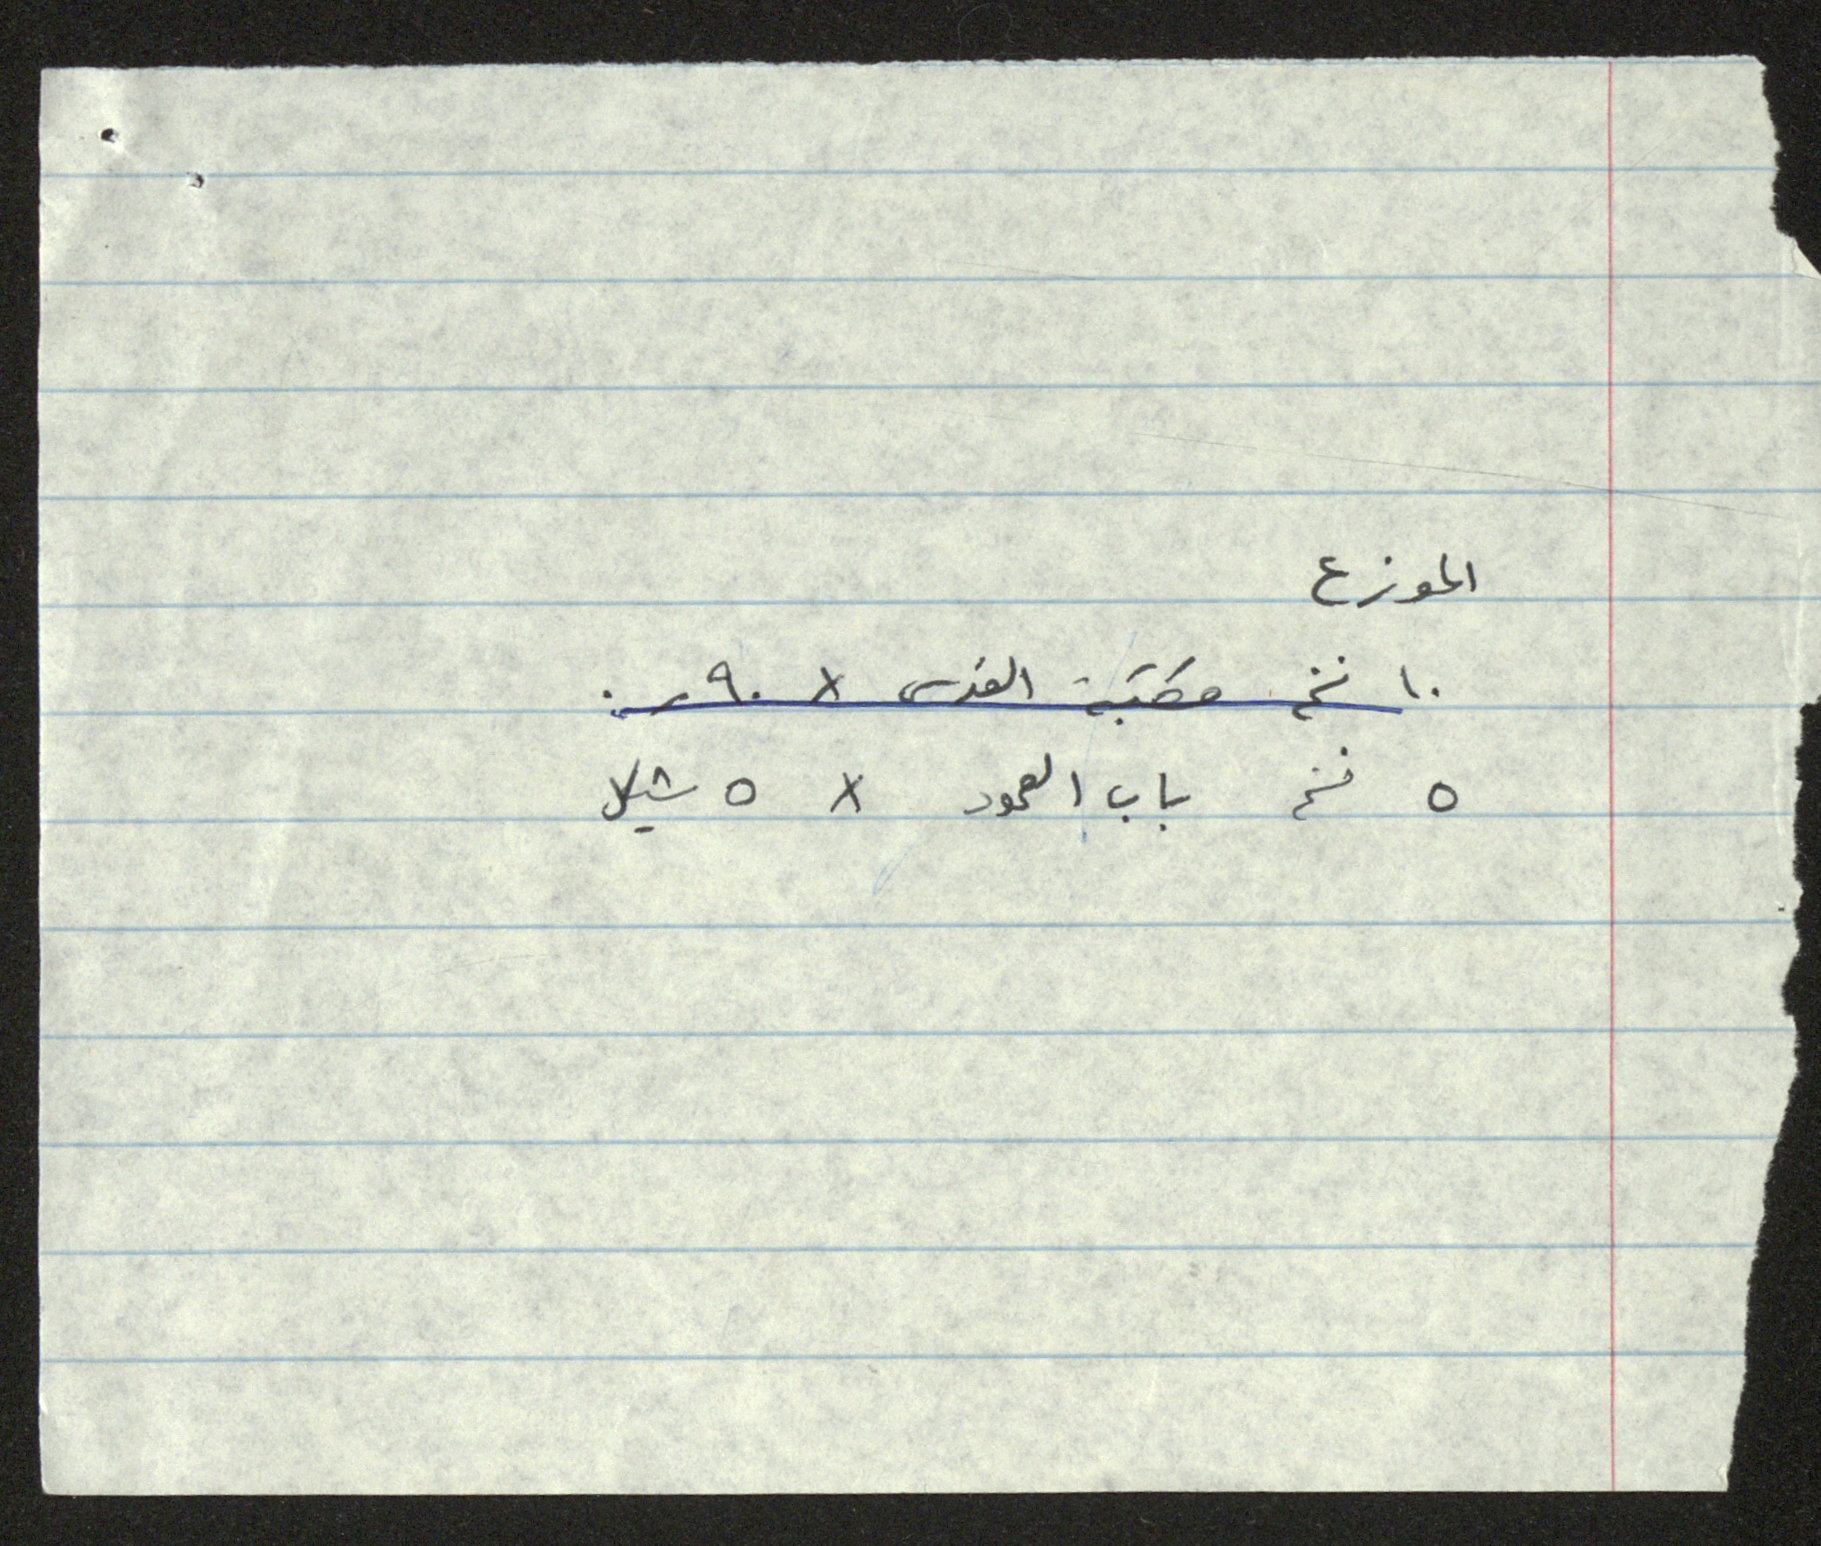 الموزع
١٠ نسخ مكتبة القدس × ٩٠ر٠
٥ نسخ باب العمود × ٥ شيكل